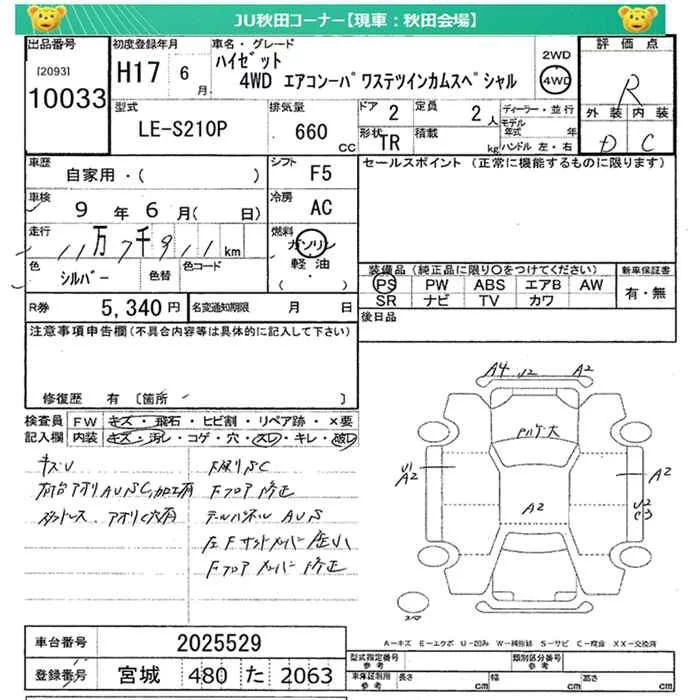 JU秋田コーナー【現車：秋田会場】
出品番号
[2093]
10033
初度登録年月
H17 6月
車名・グレード
ハイゼット
4WD エアコンーパワステツインカムスペシャル
2WD
4WD
評価点
R
外装 内装
D C
型式
LE-S210P
排気量
660 CC
ドア 2
形状 TR
定員 2人
積載 kg
ディーラー・並行
モデル年式 年
ハンドル 左・右
車歴
自家用・( )
シフト F5
車検
9年6月( 日)
冷房 AC
走行
11万7千911km
燃料
ガソリン
軽油
( )
色 シルバー 色替 色コード
R券 5,340円 名変通知期限 月 日
セールスポイント (正常に機能するものに限ります)
装備品 (純正品に限り○をつけてください)
新車保証書
PS PW ABS エアB AW
SR ナビ TV カワ
有・無
後日品
注意事項申告欄 (不具合内容等は具体的に記入して下さい)
修復歴 有 [箇所 ]
検査員記入欄
FW キズ・飛石・ヒビ割・リペア跡・×要
内装 キズ・汚レ・コゲ・穴・スレ・キレ・破レ
キズU
荷台アオリAUSC,加工有
アオリC穴有
下廻りSC
Fフロア修正
テールパネルAUS
Fフロアメンバー修正
A4 U2 A2
U1
A2
A2
A2
U2
C3
A-キズ E-エクボ U-凹み W-補修跡 S-サビ C-腐食 XX-交換済
車台番号 2025529
登録番号 宮城 480 た 2063
型式指定番号 参考
類別区分番号 参考
車庫証明用 参考 長さ cm 幅 cm 高さ cm